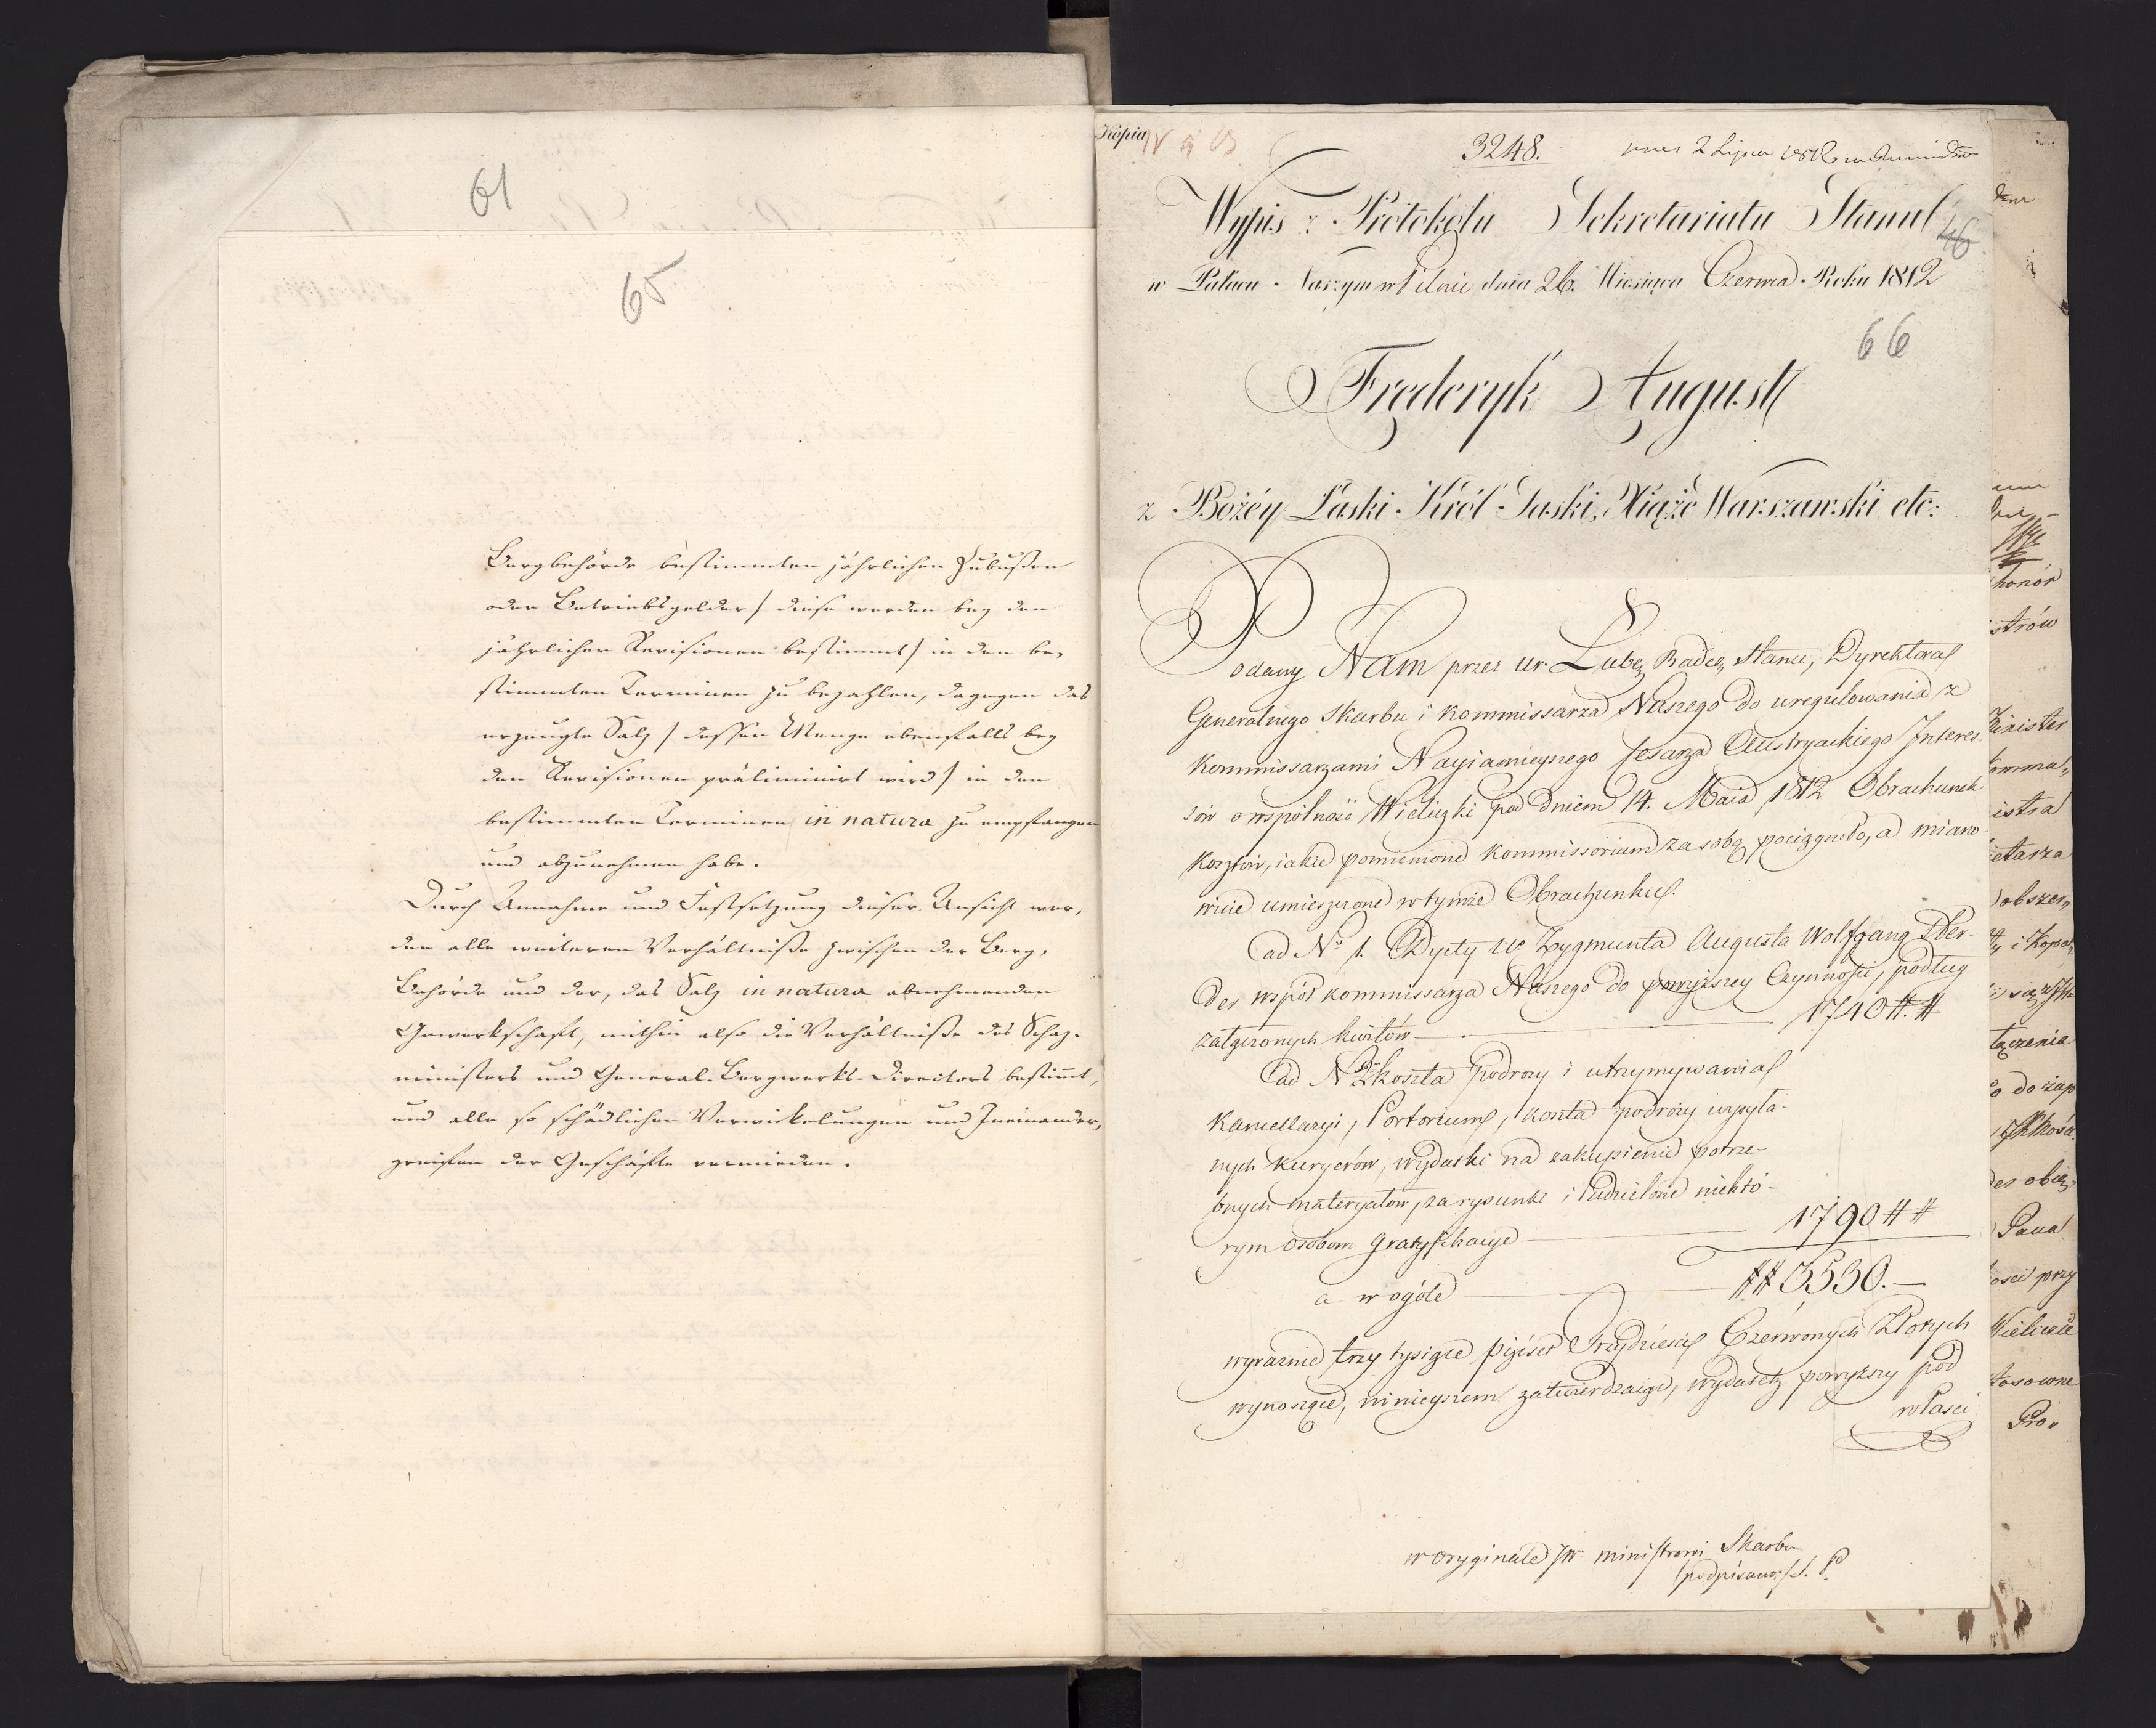 61
65
Bergbehörde bestimmten jährlichen Zubußen
oder Betriebsgelder / diese werden bey den
jährlichen Revisionen bestimmt / in den be-
stimmten Terminen zu bezahlen, dagegen das
erzeugte Salz / dessen Menge ebenfalls bey
den Revisionen präliminirt wird / in den
bestimmten Terminen in natura zu empfangen
und abzunehmen habe.
Durch Annahme und Festsetzung dieser Ansicht wer-
den alle weiteren Verhältniße zwischen der Berg-
Behörde und der, das Salz in natura abnehmenden
Gewerkschaft, mithin also die Verhältniße des Schaz-
ministers und General-Bergwerks-Directors bestimt,
und alle so schädlichen Verwickelungen und Ineinander-
greifen der Geschäfte vermieden.
Kopia
3248.
2 Lipca 1812
Wypis z Protokołu Sekretariatu Stanu
46
w Pałacu Naszym w Pilnie dnia 26. Miesiąca Czerwca Roku 1812
66
Fryderyk August
z Bożéy Łaski Król Saski, Xiąże Warszawski etc:
Podany Nam przez Ur. Lubę Radcę Stanu, Dyrektora
Generalnego Skarbu i Kommissarza Naszego do uregulowania z
Kommissarzami Nayiaśnieyszego Cesarza Austryackiego Interes-
sów o wspólność Wieliczki pod dniem 14. Maia 1812 Obrachunek
Kosztów, iakie pomienione Kommissorium za sobą pociągneło, a miano-
wicie umieszczone w tymże Obrachunku.
ad No 1. Dyety Ur Zygmunta Augusta Wolfgang Her-
der współ kommissarza Naszego do powyższey Czynności, podług
załączonych kwitów 1740 ##
ad No 2. koszta podroży i utrzymywania
Kancellaryi, Portorium, koszta podróży wysyła-
nych Kuryerów, wydatki na zakupienie potrze-
bnych materyałów, za rysunki i udzielone niektó-
rym osobom gratyfikacye 1790 ##
a w ogóle ## 3530.—
wyraznie trzy tysiące pięćset Trzydzieści Czerwonych Złotych
wynoszące, ninieyszem zatwierdzaiąc, wydatek powyższy pod
właści
w oryginale JW ministrowi Skarbu
/podpisano/
honór
istrów
Minister
omma,,
istra
etarza
obszer,,
i Kopal,
łączenia
o do żup
der obię,
Pana
ości przy
Wieliczce
tosowne
Pro,,